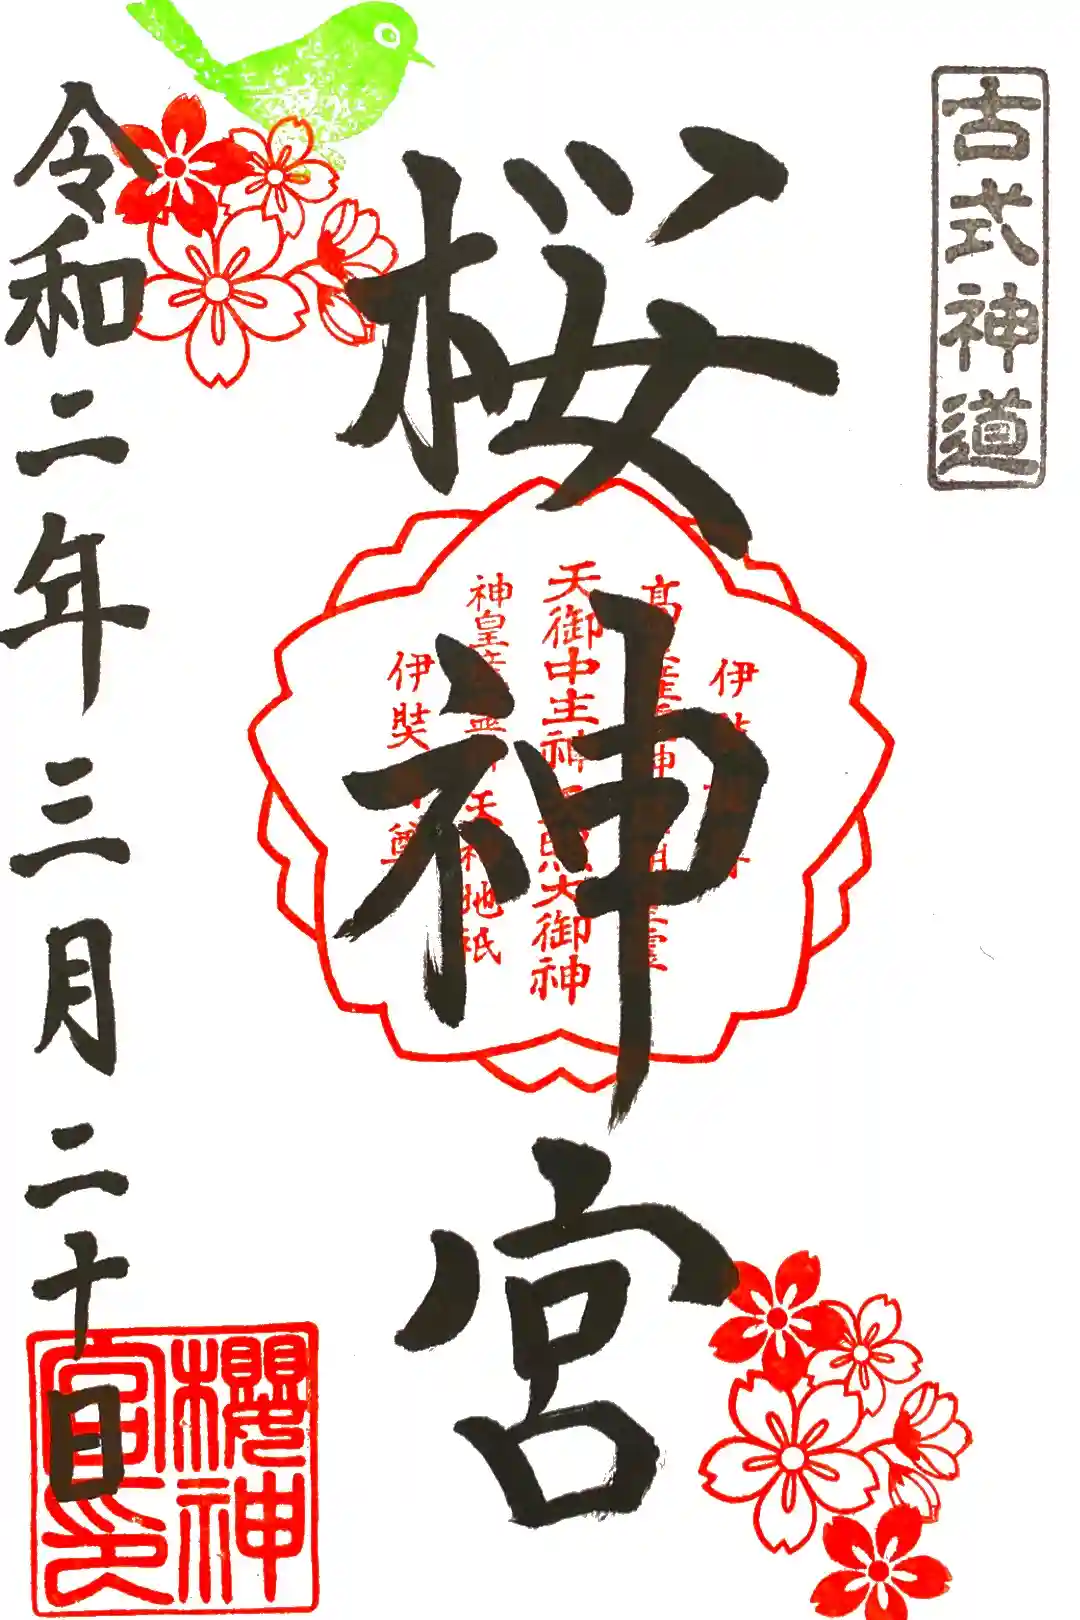 古式神道
桜神宮
伊
天御中主神 天照大御神
神皇産霊 天神地祇
伊弉 尊
令和二年三月二十日
櫻神宮印